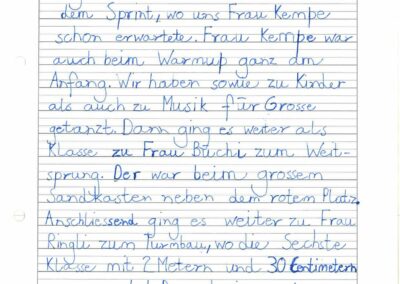 dem Sprint, wo uns Frau Kempe
schon erwartete. Frau Kempe war
auch beim Warmup ganz am
Anfang. Wir haben sowie zu Kinder
als auch zu Musik für Grosse
getanzt. Dann ging es weiter als
Klasse zu Frau Büchi zum Weit-
sprung. Der war beim grossem
Sandkasten neben dem rotem Platz.
Anschliessend ging es weiter zu Frau
Ringli zum Turmbau, wo die Sechste
Klasse mit 2 Metern und 30 Centimetern